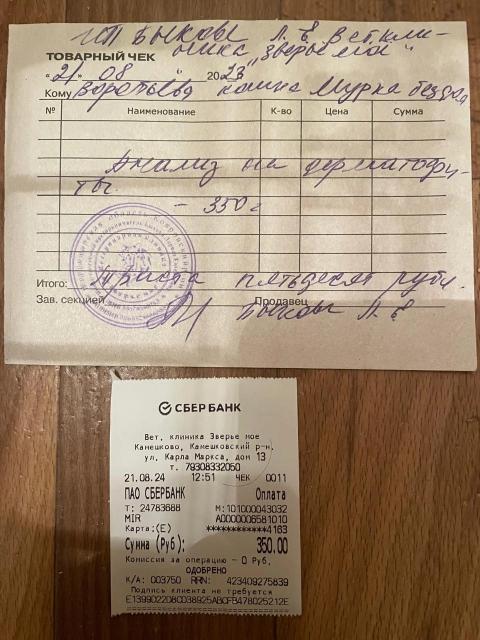 ИП Быкова Л. В вет. кли-
ника "Зверье мое"
ТОВАРНЫЙ ЧЕК
"21" 08 20
Кому кошка Мурка
№ Наименование К-во Цена Сумма
Анализ на дерматофи-
ты.
- 350
Итого: Триста пятьдесят
Зав. секцией Продавец Быкова Л.
СБЕРБАНК
Вет. клиника Зверье мое
Камешково, Камешковский р-н,
ул. Карла Маркса, дом 13
т. 79308332050
21.08.24 12:51 ЧЕК 0011
ПАО СБЕРБАНК Оплата
Т: 24783688 М:101000043032
MIR A0000006581010
Карта:(E) ************4163
Сумма (Руб): 350.00
Комиссия за операцию - 0 Руб.
ОДОБРЕНО
К/А: 003750 RRN: 423409275839
Подпись клиента не требуется
E139902208C038925ABCFB478025212E